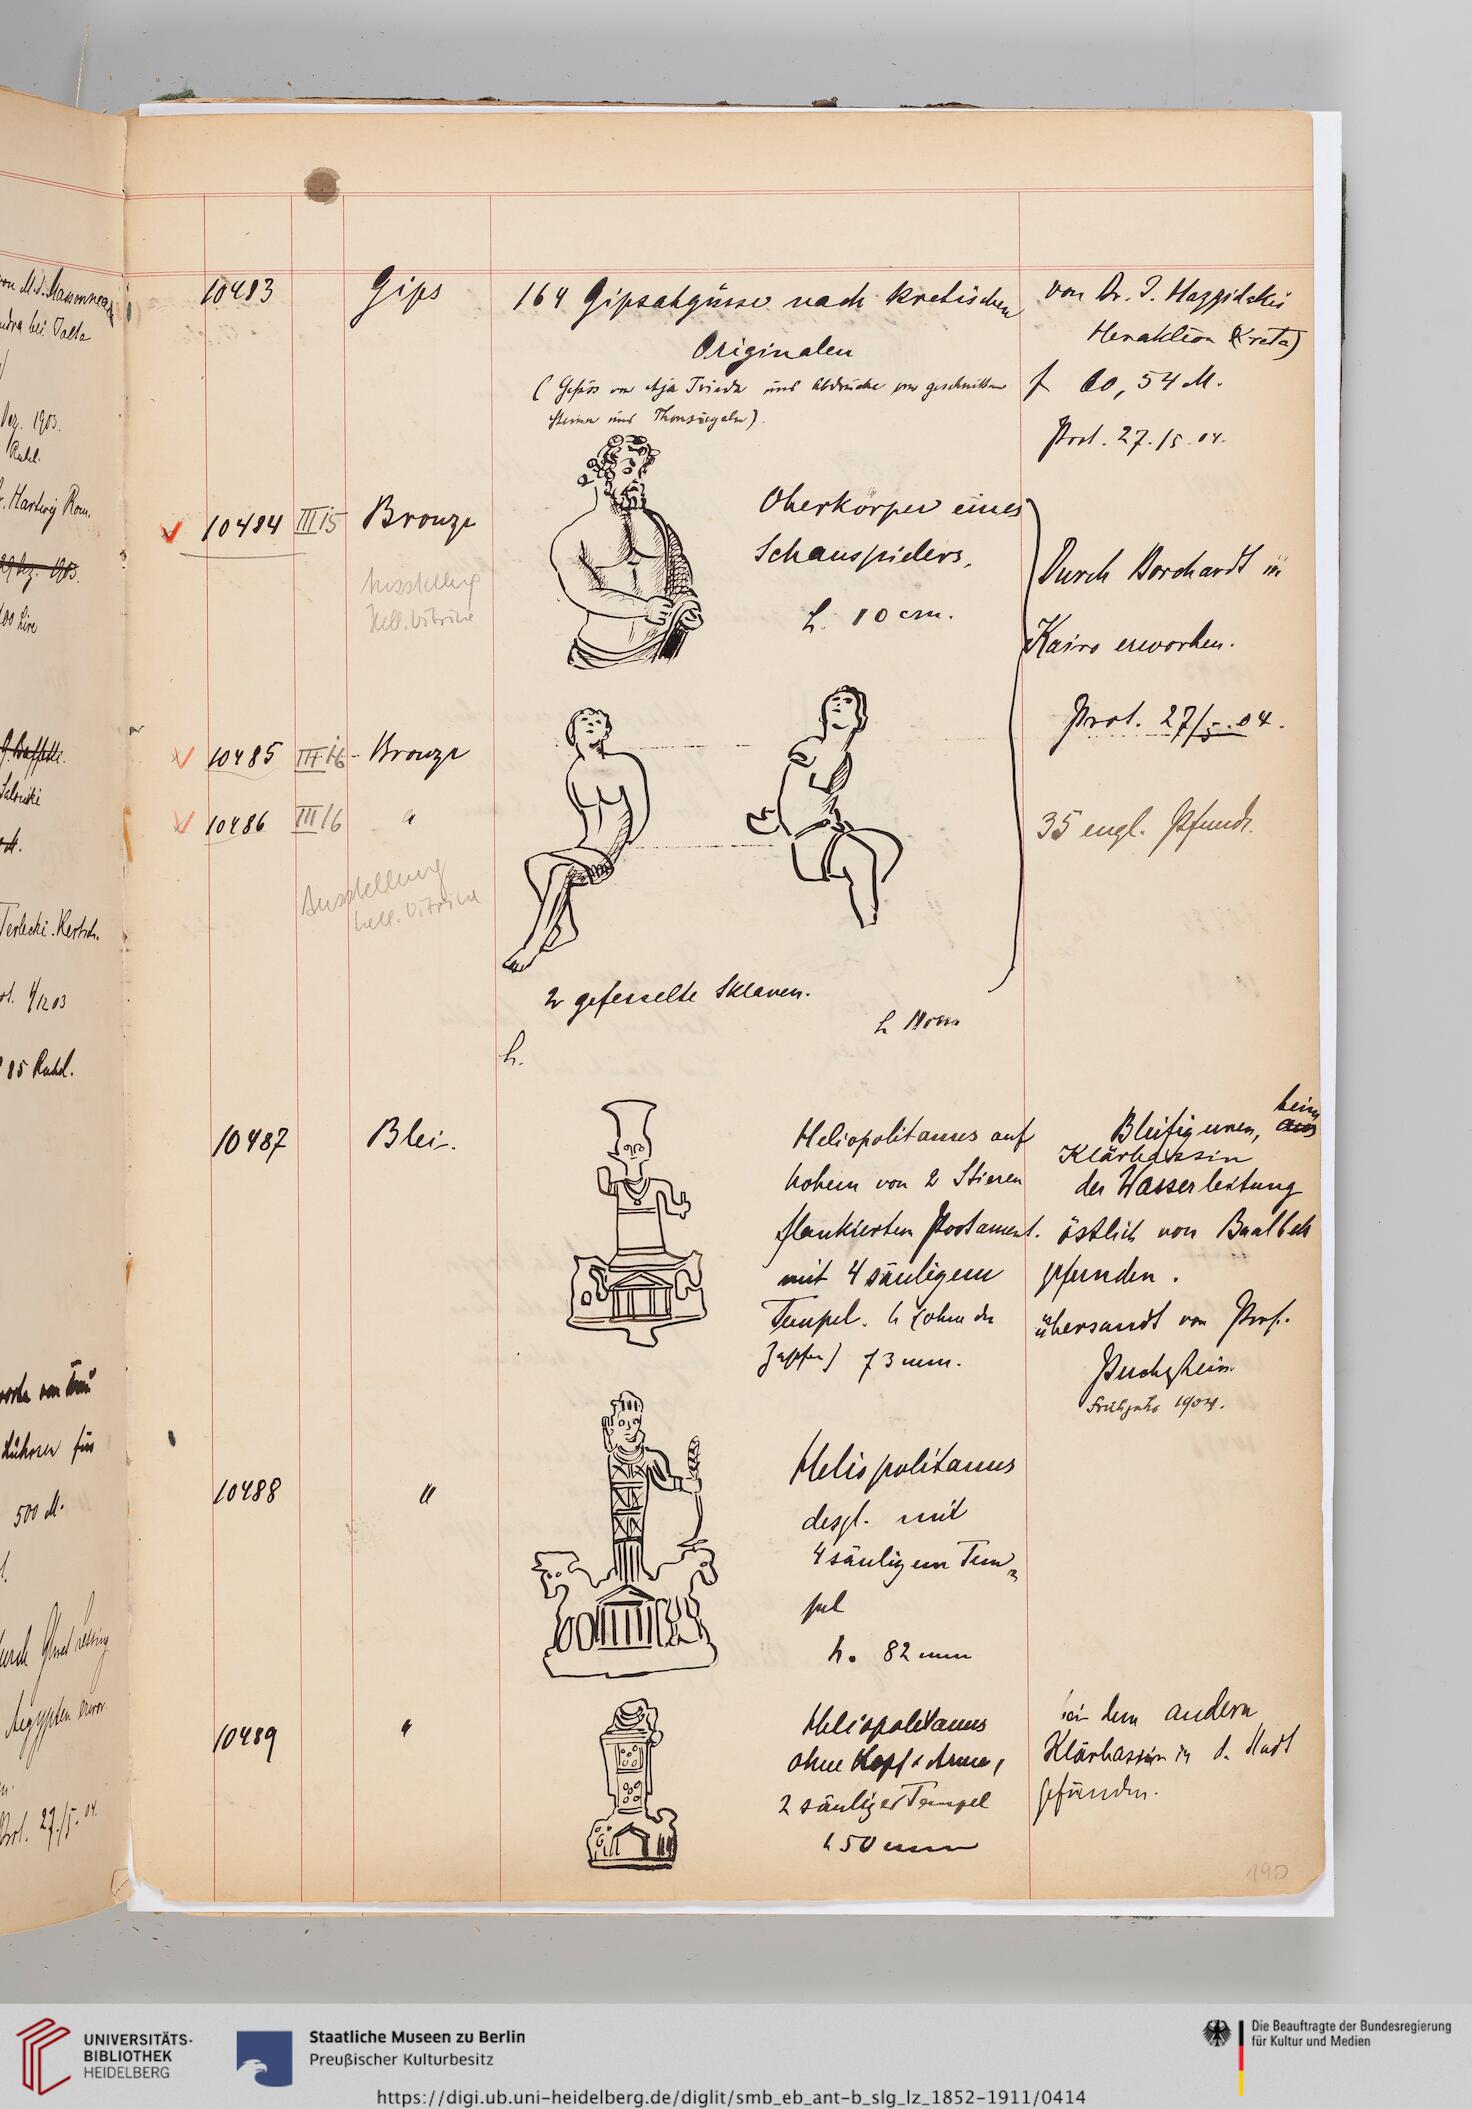 10483
Gips
164 Gipsabgüsse nach kretischen
Originalen
(Gefäss von Aja Triada und Abdrücke von geschnittenen
Steinen und Thonsiegeln).
von Dr. J. Hazzidakis
Heraklion (Kreta)
f 60,54 M.
Prot. 27./5.04.
10484
III 15
Bronze
Ausstellung
hell. Vitrine
Oberkörper eines
Schauspielers.
h. 10 cm.
Durch Borchardt in
Kairo erworben.
Prot. 27/5.04.
35 engl. Pfund.
10485
III 16
Bronze
10486
III 16
"
Ausstellung
hell. Vitrine
2 gefesselte Sklaven.
h.
10487
Blei.
Heliopolitanus auf
hohem von 2 Stieren
flankierten Postament.
mit 4 säuligem
Tempel. h (ohne den
Zapfen) 73 mm.
Bleifiguren, beim
Klärbassin
der Wasserleitung
östlich von Baalbek
gefunden.
übersandt von Prof.
Puchstein.
Frühjahr 1904.
10488
"
Heliopolitanus
desgl. mit
4 säuligem Tem-
pel
h. 82 mm
10489
"
Heliopolitanus
ohne Kopf & Arme,
2 säuliger Tempel
h 50 mm
bei dem andern
Klärbassin in d. Stadt
gefunden.
190
von M.d. Massonneau
bei Jalta
Dez. 1903.
Rubl.
Hartwig Rom.
29 Dez. 1903.
100 Lire
Terlecki. Kertsch.
4/12 03
85 Rubl.
500 M.
Aegypten
Prot. 27./5. 04.
UNIVERSITÄTS-
BIBLIOTHEK
HEIDELBERG
Staatliche Museen zu Berlin
Preußischer Kulturbesitz
Die Beauftragte der Bundesregierung
für Kultur und Medien
https://digi.ub.uni-heidelberg.de/diglit/smb_eb_ant-b_slg_lz_1852-1911/0414